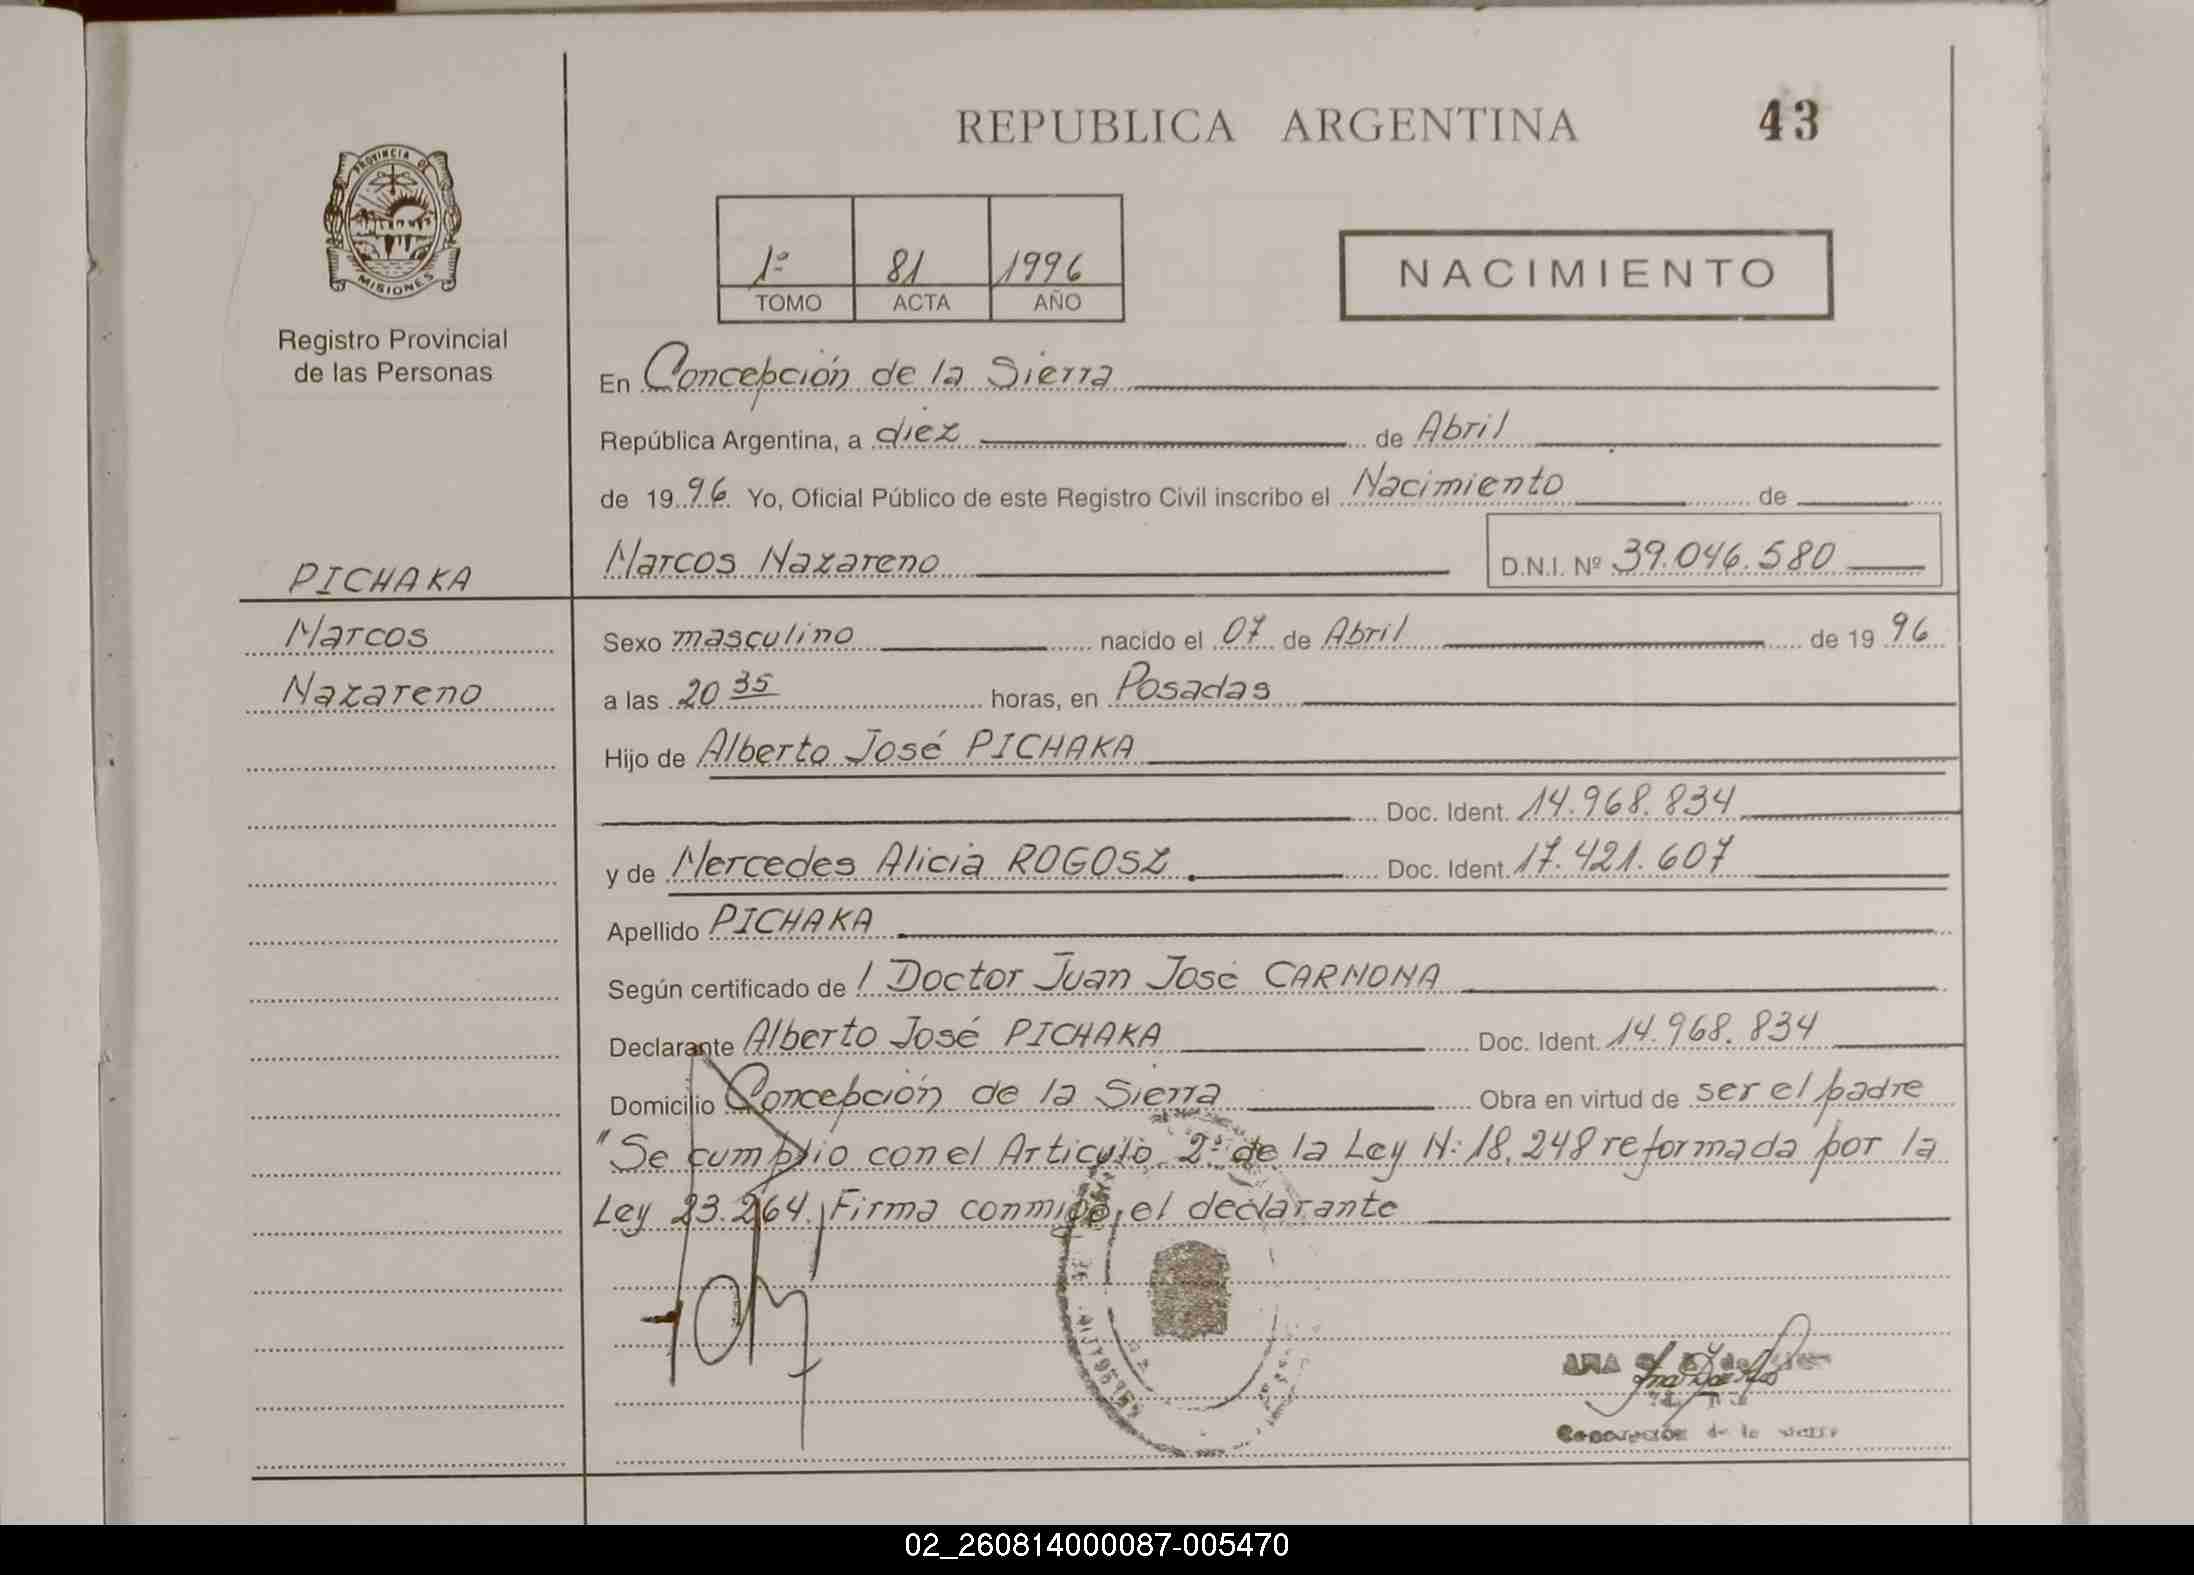 REPUBLICA ARGENTINA 43
PROVINCIA DE
MISIONES
Registro Provincial
de las Personas
1º 81 1996
TOMO ACTA AÑO
NACIMIENTO
En Concepción de la Sierra
República Argentina, a diez de Abril
de 1996 Yo, Oficial Público de este Registro Civil inscribo el Nacimiento de
PICHAKA
Marcos
Nazareno
Marcos Nazareno D.N.I. Nº 39.046.580
Sexo masculino nacido el 07 de Abril de 1996
a las 20 35 horas, en Posadas
Hijo de Alberto José PICHAKA
Doc. Ident. 14.968.834
y de Mercedes Alicia ROGOSZ Doc. Ident. 17.421.607
Apellido PICHAKA
Según certificado de l Doctor Juan José CARMONA
Declarante Alberto José PICHAKA Doc. Ident. 14.968.834
Domicilio Concepción de la Sierra Obra en virtud de ser el padre
"Se cumplio con el Articulo 2º de la Ley N: 18.248 reformada por la
Ley 23.264. Firma conmigo, el declarante
ANA
Concepción de la Sierra
02_260814000087-005470